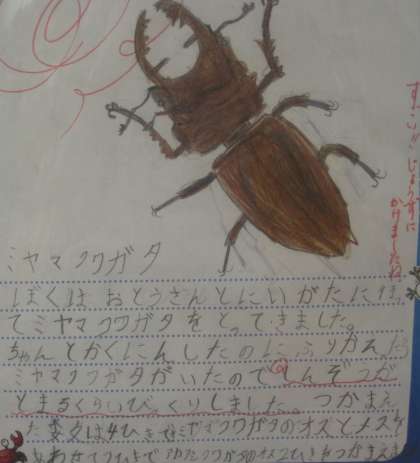 すごい!!じょうずに
かけましたね
ミヤマクワガタ
ぼくは おとうさんとにいがたに行っ
てミヤマクワガタをとってきました。
ちゃんとかくにんしたのに、ふりかえったら
ミヤマクワガタがいたので しんぞうが
とまるくらいびっくりしました。つかまえ
た 数は4ひき ミヤマクワガタのオスとメスを
あわせて ひきで